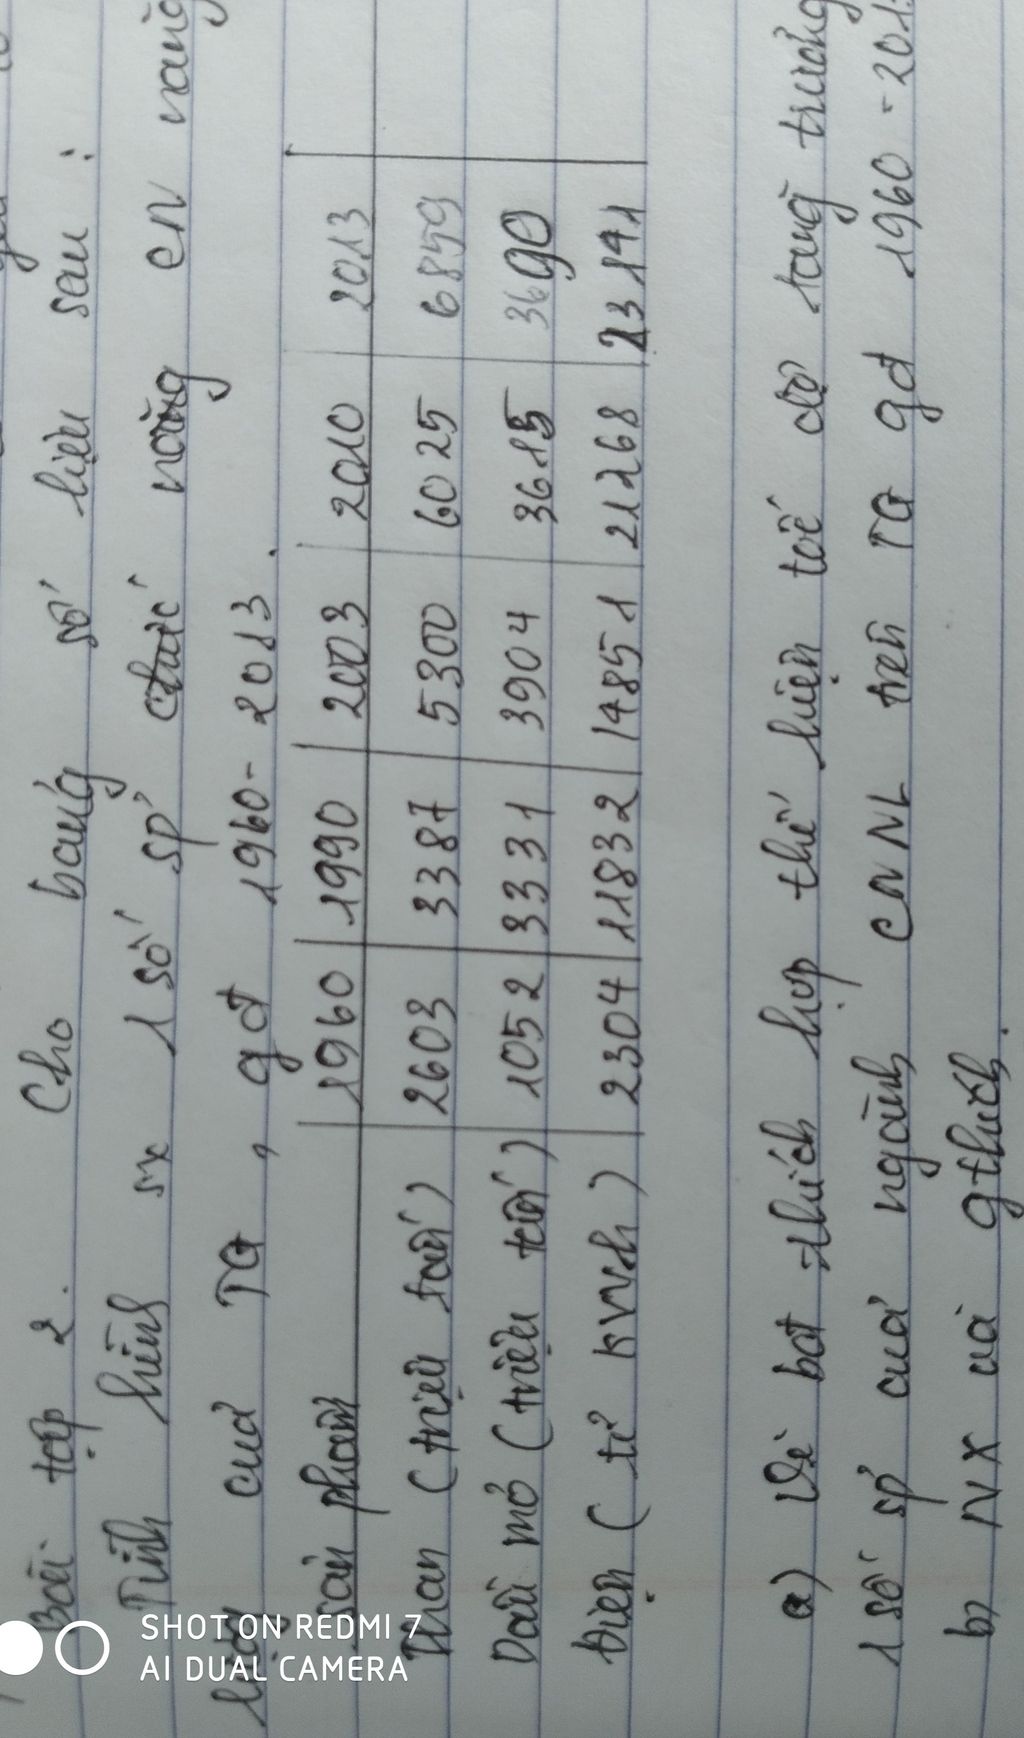 Bài tập 2. Cho bảng số liệu sau :
Tình hình sx 1 số sp' của nông cn năng
lượng của TG , gđ 1960 - 2013 .
Sản phẩm 1960 1990 2003 2010 2013
Than (triệu tấn) 2603 3387 5300 6025 6859
Dầu mỏ (triệu tấn) 1052 3331 3904 3615 3690
Điện ( tỉ kWh ) 2304 11832 14851 21268 23141
a) Vẽ bđ thích hợp thể hiện tốc độ tăng trưởng
1 số sp' của ngành CN NL trên TG gđ 1960 - 201
b, NX và gthích .
SHOT ON REDMI 7
AI DUAL CAMERA